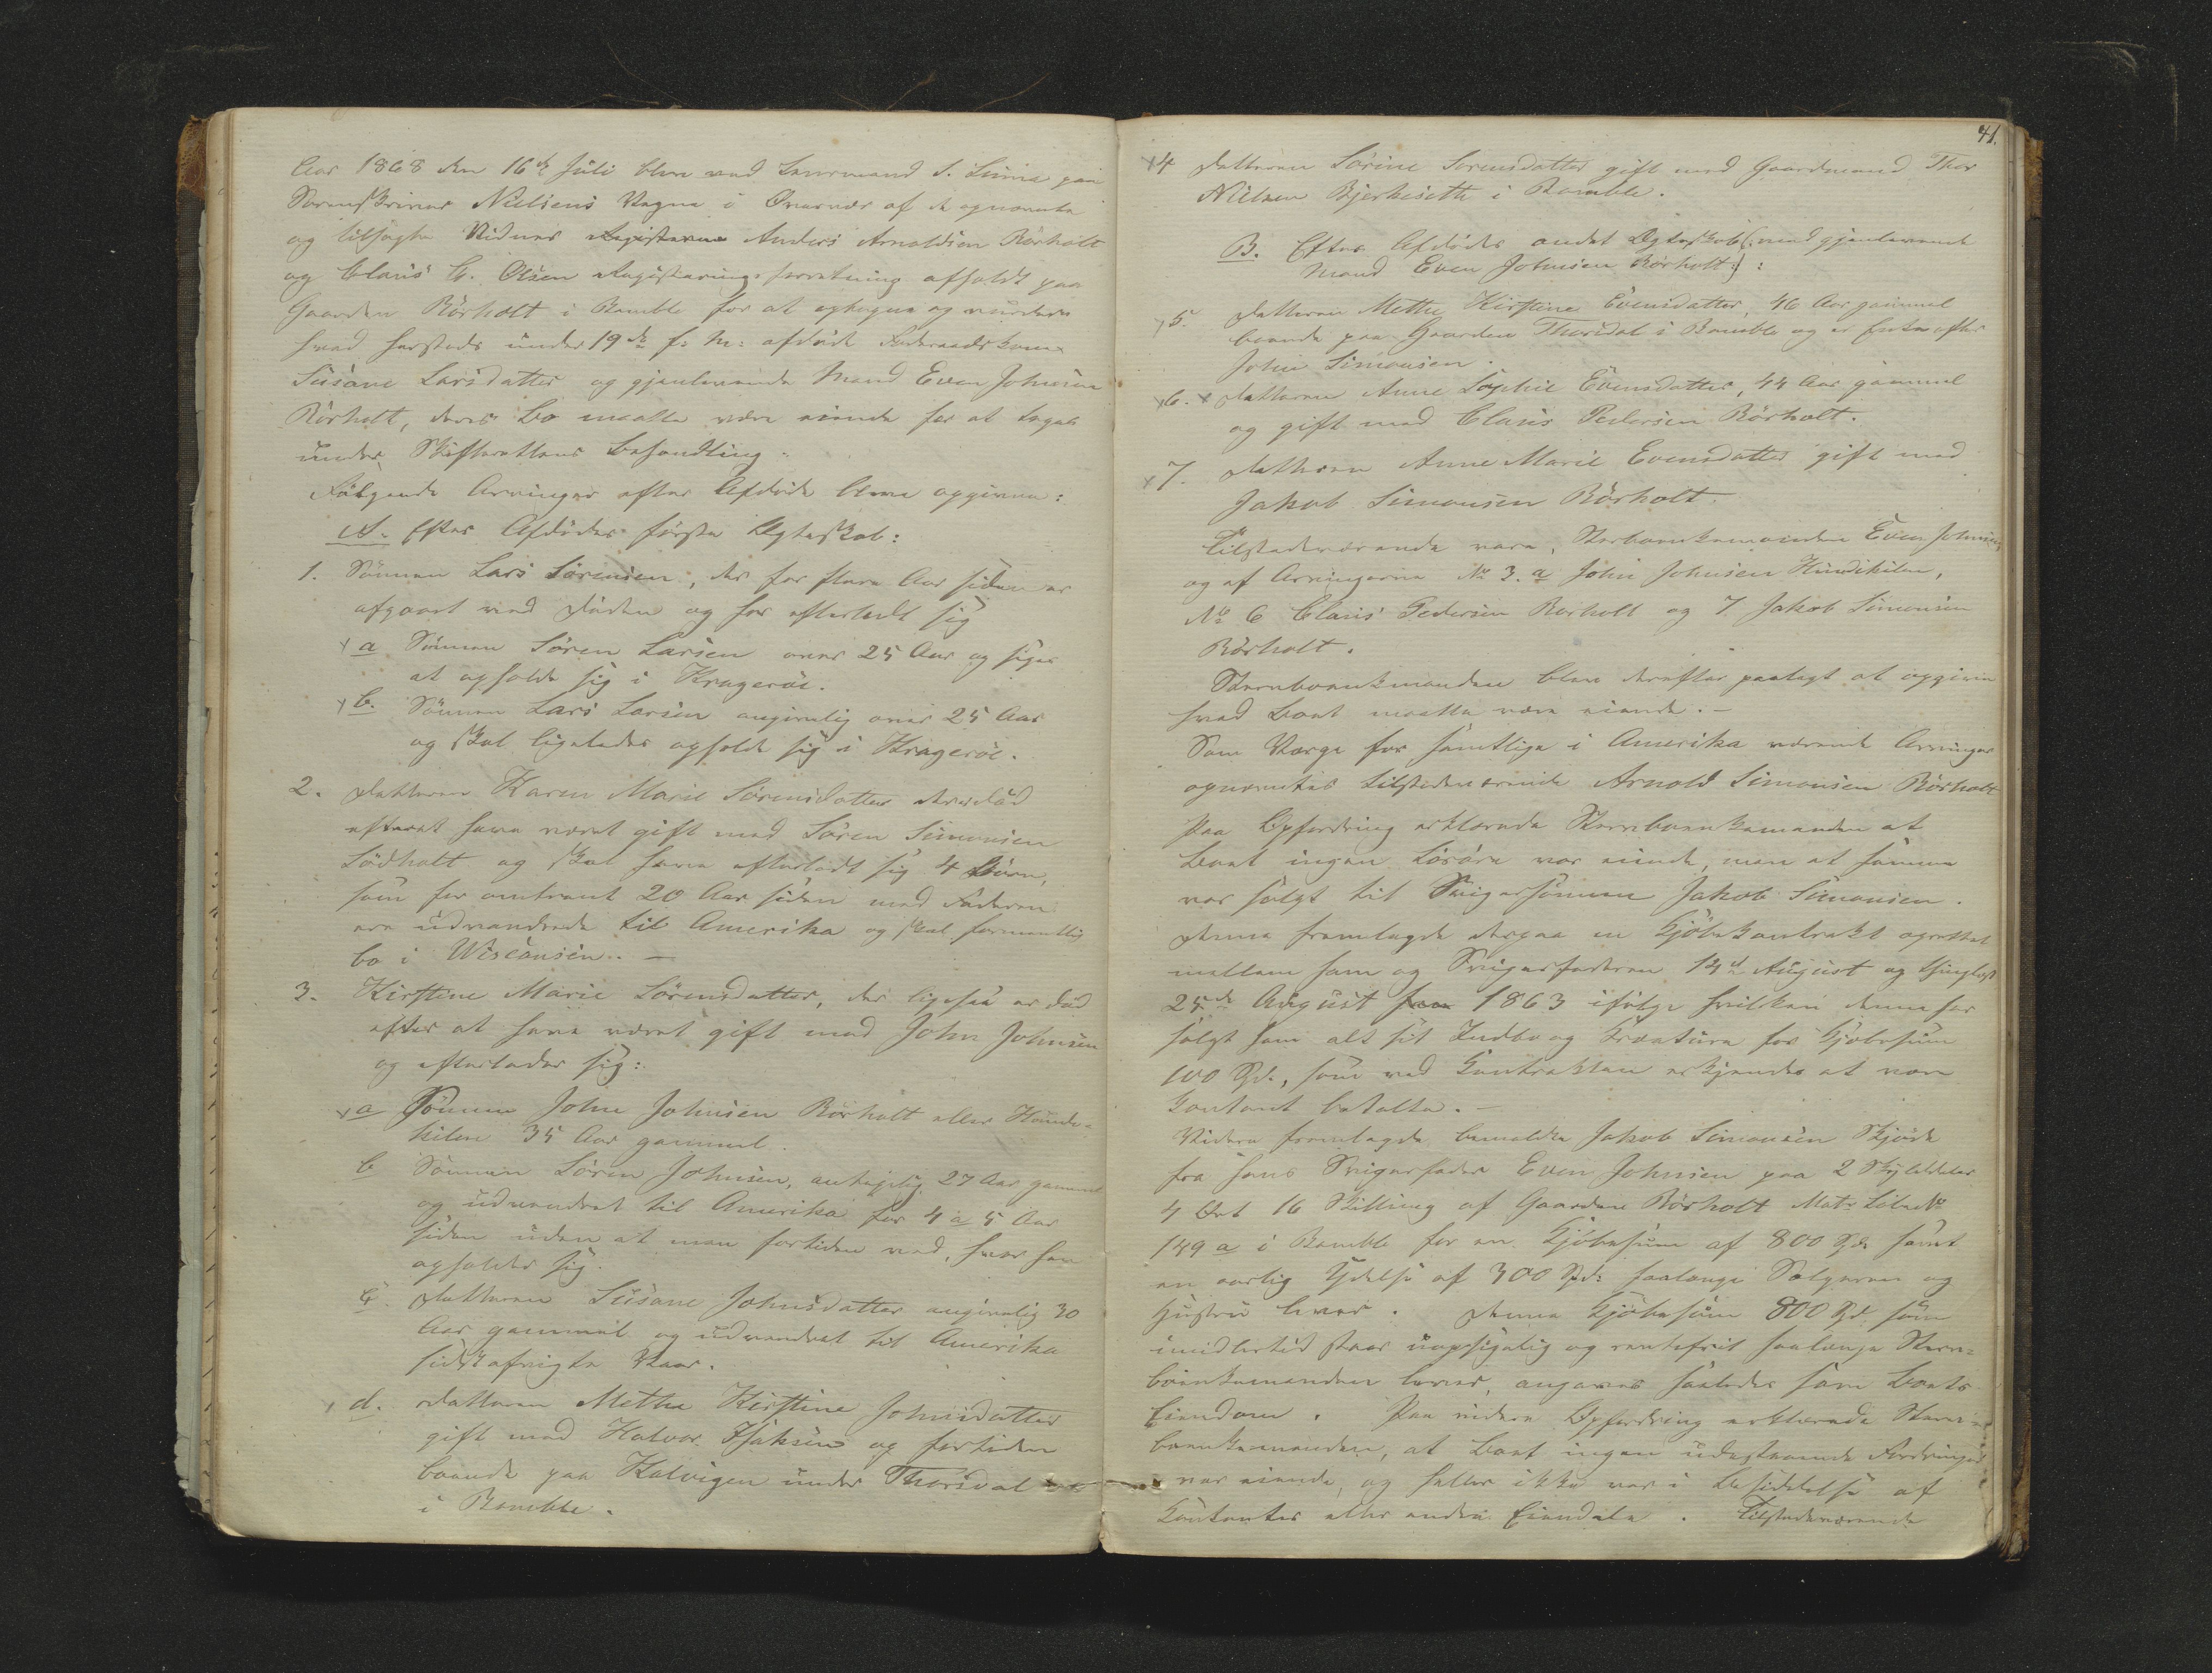 Aar 1868 den 16de Juli blev ved Lensmand S. Linaa paa
Sorenskriver Nielsens Vegne i Overvær af de opnævnte
og tilsagte Vidner Anders Arnoldsen Rörholt
og Claus G. Olsen Registreringsforretning afholdt paa
Gaarden Rörholt i Bamble for at optegne og vurdere
hvad hersteds under 19de f: M: afdöde Föderaadskone
Susane Larsdatter og gjenlevende Mand Even Johnsen
Rörholt, deres Bo maatte være eiende for at tages
under Skifterettens Behandling.
Fölgende Arvinger efter Afdöde bleve opgivne:
A. Efter Afdödes förste Ægteskab:
1. Sönnen Lars Sörensen, der for flere Aar siden er
afgaaet ved Döden og har efterladt sig
a Sönnen Sören Larsen over 25 Aar og siges
at opholde sig i Krageröe.
b. Sönnen Lars Larsen angivelig over 25 Aar
og skal ligeledes opholde sig i Krageröe.
2. Datteren Karen Marie Sörensdatter der er död
efterat have været gift med Sören Simonsen
Lödholt og skal have efterladt sig 4 Börn,
som for omtrent 20 Aar siden med Faderen
ere udvandrede til Amerika og skal formentlig
bo i Wisconsin. —
3. Kirstine Marie Sörensdatter, der ligesaa er död
efter at have været gift med John Johnsen
og efterlader sig:
a Sönnen John Johnsen Rörholt eller Hunde-
kilen 35 Aar gammel.
b Sönnen Sören Johnsen, antagelig 27 Aar gammel
og udvandret til Amerika for 4 a 5 Aar
siden uden at man fortiden ved, hvor han
opholder sig.
c. Datteren Susane Johnsdatter angivelig 30
Aar gammel og udvandret til Amerika
sidstafvigte Vaar.
d. Datteren Methe Kirstine Johnsdatter
gift med Halvor Isaksen og fortiden
boende paa Kalvigen under Thorsdal
i Bamble.
41.
4 Datteren Sörine Sorensdatter gift med Gaardmand Thor
Nielsen Bjerkesetth i Bamble.
B. Efter Afdödes andet Ægteskab (: med gjenlevende
Mand Even Johnsen Rörholt:) :
5. Datteren Methe Kirstine Evensdatter, 46 Aar gammel
boende paa Gaarden Thorsdal i Bamble og er Enke efter
John Simonsen.
6. Datteren Anne Sophie Evensdatter, 44 Aar gammel
og gift med Claus Pedersen Rörholt.
7. Datteren Anne Marie Evensdatter gift med
Jakob Simonsen Rörholt.
Tilstedeværende vare, Sterboenkemanden Even Johnsen,
og af Arvingerne No 3. a John Johnsen Hundekilen,
No 6 Claus Pedersen Rorholt og 7. Jakob Simonsen
Rörholt.
Stervboenkemanden blev derefter paalagt at opgive
hvad Boet maatte være eiende. —
Som Værge for samtlige i Amerika værende Arvinger
opnævntes tilstedeværende Arnold Simonsen Rörholt
Paa Opfordring erklærede Stervboenkemanden at
Boet ingen Lösöre var eiende, men at samme
var solgt til Svigersönnen Jakob Simonsen.
Denne fremlagde derpaa en Kjöbekontrakt oprettet
mellem ham og Svigerfaderen 14de August og thinglyst
25de August 1863 ifölge hvilken denne har
solgt ham alt sit Indbo og Kreature for Kjöbesum
100 Spd., som ved Kontrakten erkjendes at være
kontant betalte. —
Videre fremlagde bemeldte Jakob Simonsen Skjöde
fra hans Svigerfader Even Johnsen paa 2 Skylddaler
4 Ort 16 Skilling af Gaarden Rörholt Matr. Löbe No
149 a i Bamble for en Kjöbesum af 800 Spd samt
en aarlig Ydelse af 300 Spd: saalænge Sælgeren og
Hustru lever. Denne Kjöbesum 800 Spd. som
imidlertid staar uopsigelig og rentefrit saalænge Sterv-
boenkemanden lever, angaves saaledes som Boets
Eiendom. Paa videre Opfordring erklærede Sterv-
boenkemanden, at Boet ingen udestaaende Fordringer
var eiende, og heller ikke var i Besiddelse af
Kontanter eller andre Eiendele. Tilstedeværende